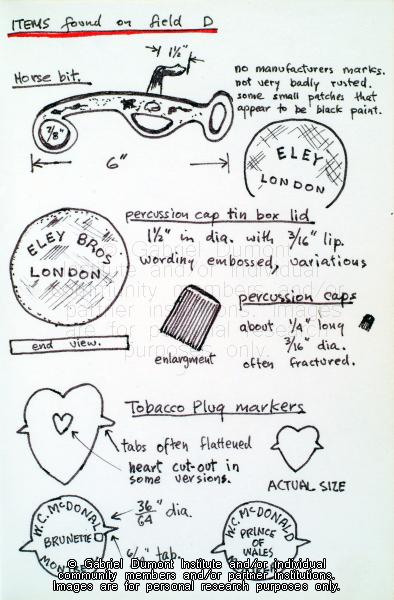 ITEMS found on field D
1½"
Horse bit.
no manufacturers marks.
not very badly rusted.
some small patches that
appear to be black paint.
7/8"
6"
ELEY
LONDON
percussion cap tin box lid
1½" in dia. with 3/16" lip.
wording embossed, variations
ELEY BROS
LONDON
end view.
percussion caps
about ¼" long
3/16" dia.
often fractured.
enlargment
Tobacco Plug markers
tabs often flattened
heart cut-out in
some versions.
ACTUAL SIZE
36/64" dia.
tab.
W.C. McDONALD
BRUNETTE
W.C. McDONALD
PRINCE
OF
WALES
© Gabriel Dumont Institute and/or individual
community members and/or partner institutions.
Images are for personal research purposes only.